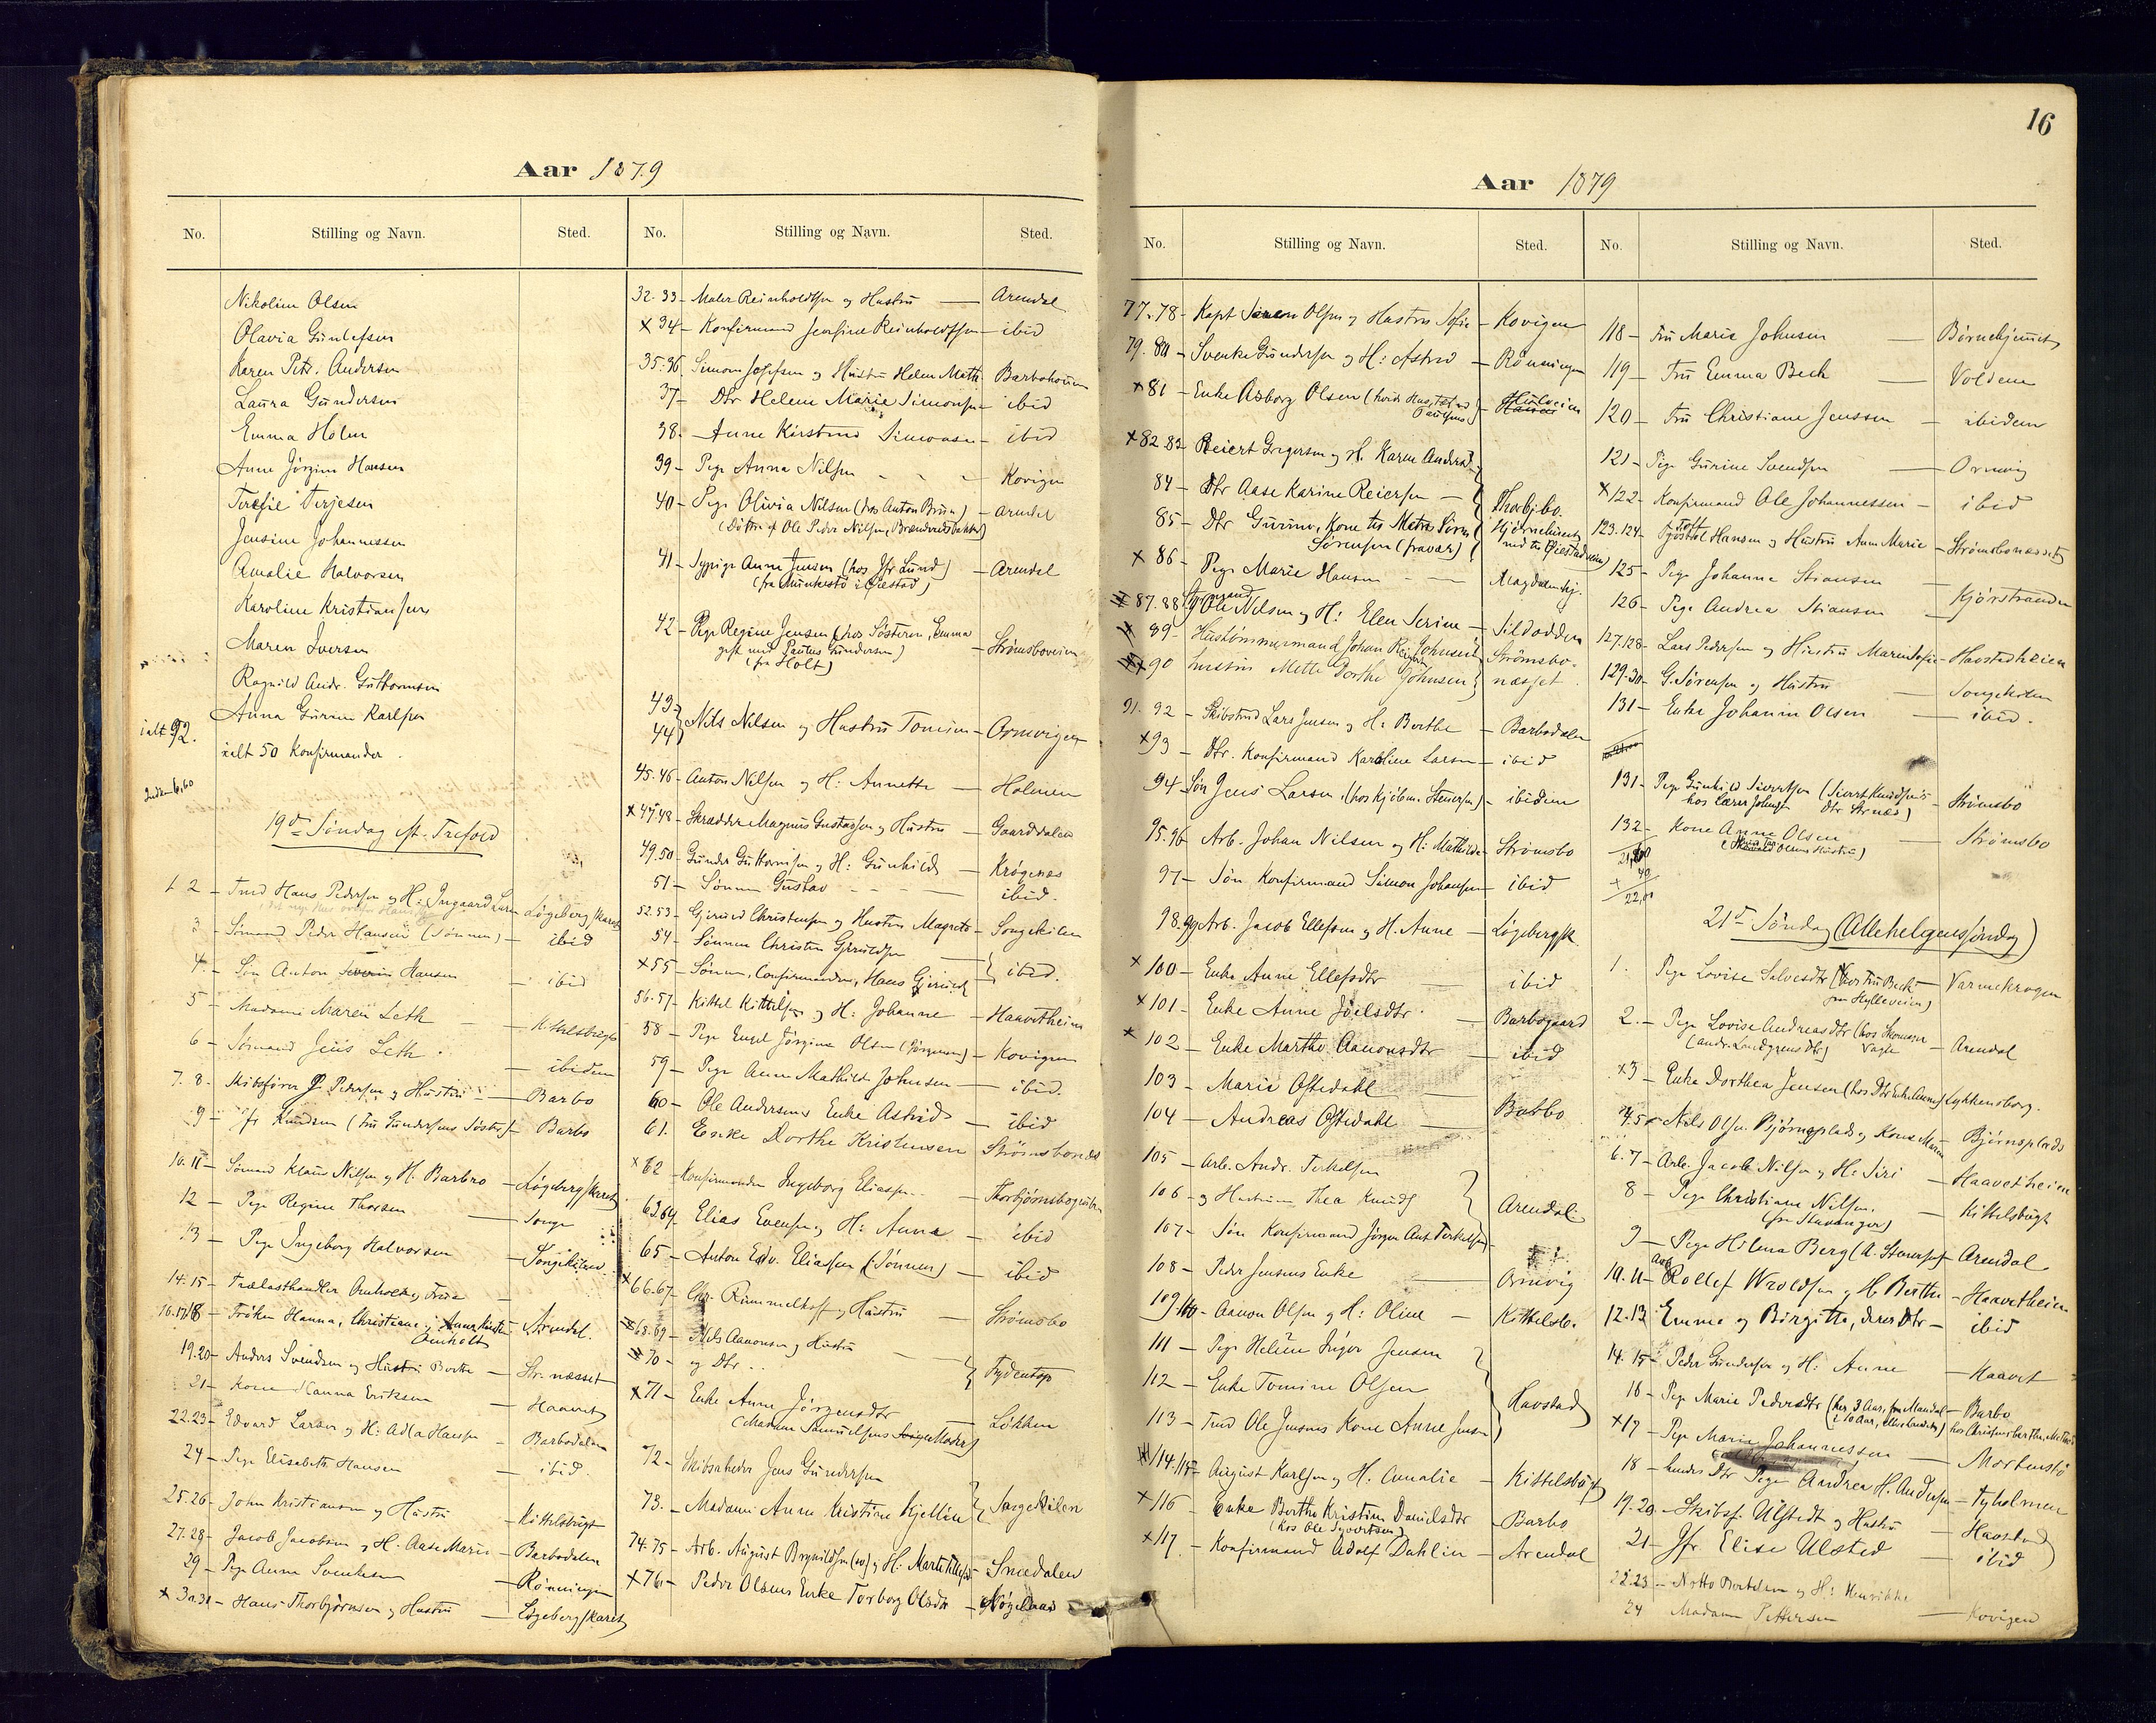 Aar 1879
No. Stilling og Navn. Sted.
Nikoline Olsen
Olavia Gundersen
Karen Petr. Andersen
Laura Gundersen
Emma Holm
Anne Jörgine Hansen
Terefie Terjesen
Jensine Johannessen
Amalie Halvorsen
Karoline Kristiansen
Maren Iversen
Ragnild Andr. Guttormsen
Anna Gurine Karlsen
ialt 92.
ialt 50 Konfirmander.
19de Söndag eft. Trefold
1. 2 - Tmd Hans Pedersen og H: Ingaard Larsen - Lögebergskaret
3 - Sömand Peder Hansen (Sönnen) - ibid
4. - Sön Anton Severin Hansen - ibid
5 - Madame Maren Leth - Kittelsbugt
6 - Sömand Jens Leth - ibidem
7. 8. - Skibsförer P. Pedersen og Hustru - Barbo
9 - Jfr Knudsen (Fru Gundersens Söster) - Barbo
10. 11 - Sömand Klaus Nilsen og H. Barbro - Lögebergskaret
12 - Pige Regine Thorsen - Songe
13 - Pige Ingeborg Halvorsen - Songekilen
14. 15 - Trælasthandler Omholt og Frue
16. 17. 18 - Fröken Hanna, Christiane, Anne Kirstine Omholt - Arendal.
19. 20 - Anders Svendsen og Hustru Berthe - Str. næsset
21 - Kone Hanna Eriksen - Haavet
22. 23 - Edvard Larsen og H: Adla Hansen - Barbodalen
24 - Pige Elisabeth Hansen - ibid.
25. 26 - John Kristiansen og Hustru - Kittelsbugt
27. 28 - Jacob Jacobsen og H. Aase Marie - Barbodalen
29 - Pige Anne Svenksen - Rönningen
x 30. 31 - Hans Thorbjörnsen og Hustru - Lögebergskaret
No. Stilling og Navn. Sted.
32. 33 - Maler Reinholdtsen og Hustru - Arendal
x 34 - Konfirmand Jensine Reinholdtsen - ibid
35. 36. Simon Josefsen og Hustru Helene Math. Barbohouen
37 - Dtr Helene Marie Simonsen - ibid
38. - Anne Kirstine Simonsen - ibid
39 - Pige Anna Nilsen - Kovigen
40 - Pige Olivia Nilsen (hos Anton Bruun) - Arendal
(Datter af Ole Peder Nilsen, Brændevinsbakken)
41 - Sypige Anne Jensen (hos Jfr Lund) - Arendal
(fra Munkestö i Öiestad)
42 - Pige Regine Jensen (hos Sösteren, Emma
gift med Paulus Gundersen) - Strömsboveien
(fra Holt)
43. 44 } Nils Nilsen og Hustru Tomine - Ormvigen
45. 46 - Anton Nilsen og H: Annette - Holmen
x 47. 48 - Skrædder Magnus Gustavsen og Hustru - Gaarddalen
49. 50 - Gunder Guttormsen og H: Gunhild - Krögenæs
51 - Sönnen Gustav - ibid.
52. 53 - Gjeruld Christensen og Hustru Magrete - Songekilen
54 - Sönnen Christen Gjeruldsen
x 55 - Sönnen, Confirmanden, Hans Gjeruld } ibid.
56. 57 - Kittel Kittelsen og H: Johanne - Haavetheien
58 - Pige Engel Jörgine Olsen - Kovigen
59 - Pige Anne Mathilde Johnsen - ibid.
60 - Ole Andersens Enke Astrid - ibid
61. Enke Dorthe Kristensen Strömsbonæs
x 62 - Konfirmanden Ingeborg Eliassen - Thorbjörnsbogruben
63. 64 Elias Evensen og H: Anna - ibid
65 - Anton Edv. Eliassen (Sönnen) - ibid
x 66. 67 - Chr. Rummelhof og Hustru - Strömsbo
68. 69 - Niels Aanonsen og Hustru
70 - og Dtr. } Fydentop
x 71 - Enke Anne Jörgensdtr - Lökken
(Madam Samuelsens Moder)
72 - Skibsreder Jens Gundersen
73. - Madame Anne Kristine Kjelline } Songekilen
74. 75 - Arb. August Brynildsen og H: Marte - Smedalen
x 76 - Peder Olsens Enke Torborg Olsdtr -
16
Aar 1879
No. Stilling og Navn. Sted.
77. 78 - Kapt Sören Olsen og Hustru Sofie - Kovigen
79. 80 - Svenke Gundersen og H: Astrid - Rönningen
x 81 - Enke Asborg Olsen - Hylveien
x 82. 83 - Reiert Gregersen og H. Karen Andersd.
84 - Dtr Aase Karine Reiersen - Thorbjbo.
85 - Dtr Gurine, Kone til Matr. Sörn
Sörensen (fravær)
x 86 - Pige Marie Hansen - Magdalenehj.
87. 88 Sömand Ole Nilsen og H: Elen Serine - Sildodden
89 - Hustömmermand Johan Reinert Johnsen
x 90 hustru Mette Dorthe Johnsen } Strömsbonæsset.
91. 92 - Skibstmd Lars Jensen og H: Berthe - Barbodalen
x 93 - Dtr. Konfirmand Karoline Larsen - ibid
94 - Sön Jens Larsen, (hos Kjöbm. Stenersen) - ibidem
95. 96 Arb. Johan Nilsen og H: Mathilde - Strömsbo
97 - Sön Konfirmand Simon Johansen - ibid
98. 99 Arb. Jacob Ellefsen og H. Anne - Lögebergsk.
x 100 - Enke Anne Ellefsdtr - ibid
x 101 - Enke Anne Joelsdtr. - Barbogaard
x 102 - Enke Marthe Aanonsdtr - ibid
103 - Marie Oftedahl
104 - Andreas Oftedahl - Barbo
105 - Arb. Andr. Terkelsen
106 - og Hustruen Thea Knuds } Arendal
107 - Sön Konfirmand Jörgen Ant. Terkelsen
108 - Peder Jensens Enke - Ormvig
109. 110 - Aanon Olsen og H: Oline - Kittelsb.
111 - Pige Helene Inger Jensen
112 - Enke Tomine Olsen
113 - Tmd Ole Jensens Kone Anne Jensen } Havstad
114. 115 - August Karlsen og H. Amalie - Kittelsbugt
x 116 - Enke Berthe Kristine Danielsdtr - Barbo
(hos Ole Syvertsen)
x 117. - Konfirmand Adolf Dahlin - Arendal
No. Stilling og Navn. Sted.
118 - Fru Marie Johnsen - Börnehjemmet
119 - Fru Emma Bech - Voldene
120 - Fru Christiane Jenssen - ibidem
121 - Pige Gurine Svendsen - Ormvig
x 122 - Konfirmand Ole Johannessen - ibid
123. 124 - Hansen og Hustru Ane Marie - Strömsbonæsset
125 - Pige Johanne Stiansen
126 - Pige Andrea Stiansen - Kjörstranden
127. 128 - Lars Pedersen og Hustru Maren Sofie - Havstadheien
129. 30 - G. Sörensen og Hustru - Songekilen
131 - Enke Johanne Olsen - ibid.
131 - Pige Gunhild Sivertsen (Sivert Knudsens
hos Lærer Johnsen Dtr Strnæs) - Strömsbo
132 - Kone Anne Olsen - Strömsbo
22,00
21de Söndag (Allehelgenssöndag)
1. Pige Lovise Salvesdtr (hos Fru Bech - Varmekrogen
paa Hylleveien)
2. - Pige Lovise Andreasdtr (hos Skomager
(Andr. Lundgrens dtr) Vagle - Arendal
x 3 - Enke Dorthea Jensen - Lykkensborg.
4. 5 - Nils Olsen Björnsplads og Kone Maren - Björnsplads
6. 7 - Arb. Jacob Nilsen og H: Siri - Haavetheien
8 - Pige Christiane Nilsen. - Kittelsbugt
(fra Stavanger)
9 - Pige Hilena Berg (A. Stenersen) - Arendal
10. 11 - Arb Rollef Wroldsen og H. Berthe - Haavetheien
12. 13 Emma og Birgitte, deres Dtr - ibid
14. 15 - Peder Gundersen og H: Anne - Haavet
16 - Pige Marie Pedersdtr (her 3 Aar, fra Mandal - Barbo
x 17 - Pige Marie Johannessen - Mortenstö
18 - hendes Dtr Pige Andrea H. Andersen - Tyholmen
19. 20 - Skibsf. Ulstedt og Hustru - Havstad
21 - Jfr Elise Ulsted - ibid
22. 23 - Notto Bertelsen og H: Henrikke
24 Madam Pettersen - Kovigen